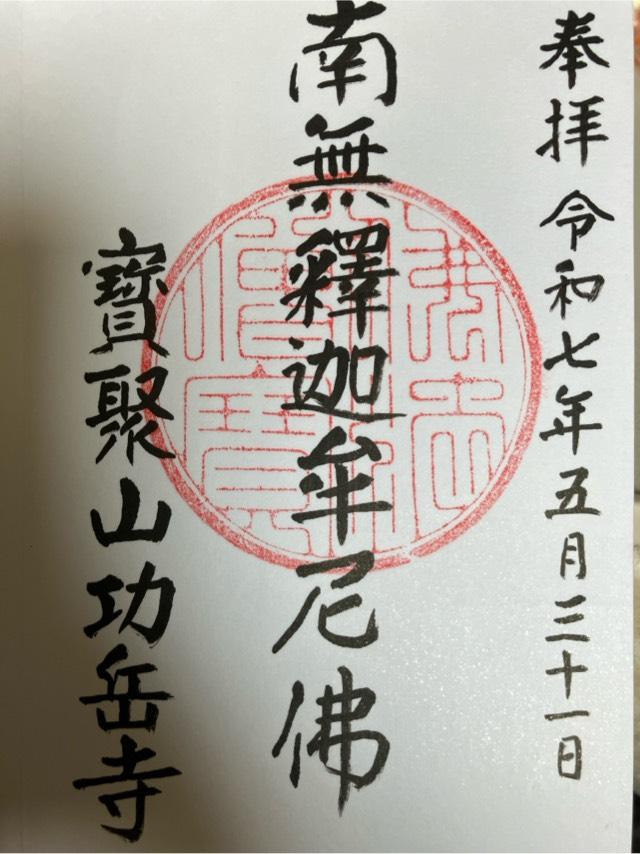 奉拝 令和七年五月三十一日
南無釋迦牟尼佛
寶聚山功岳寺